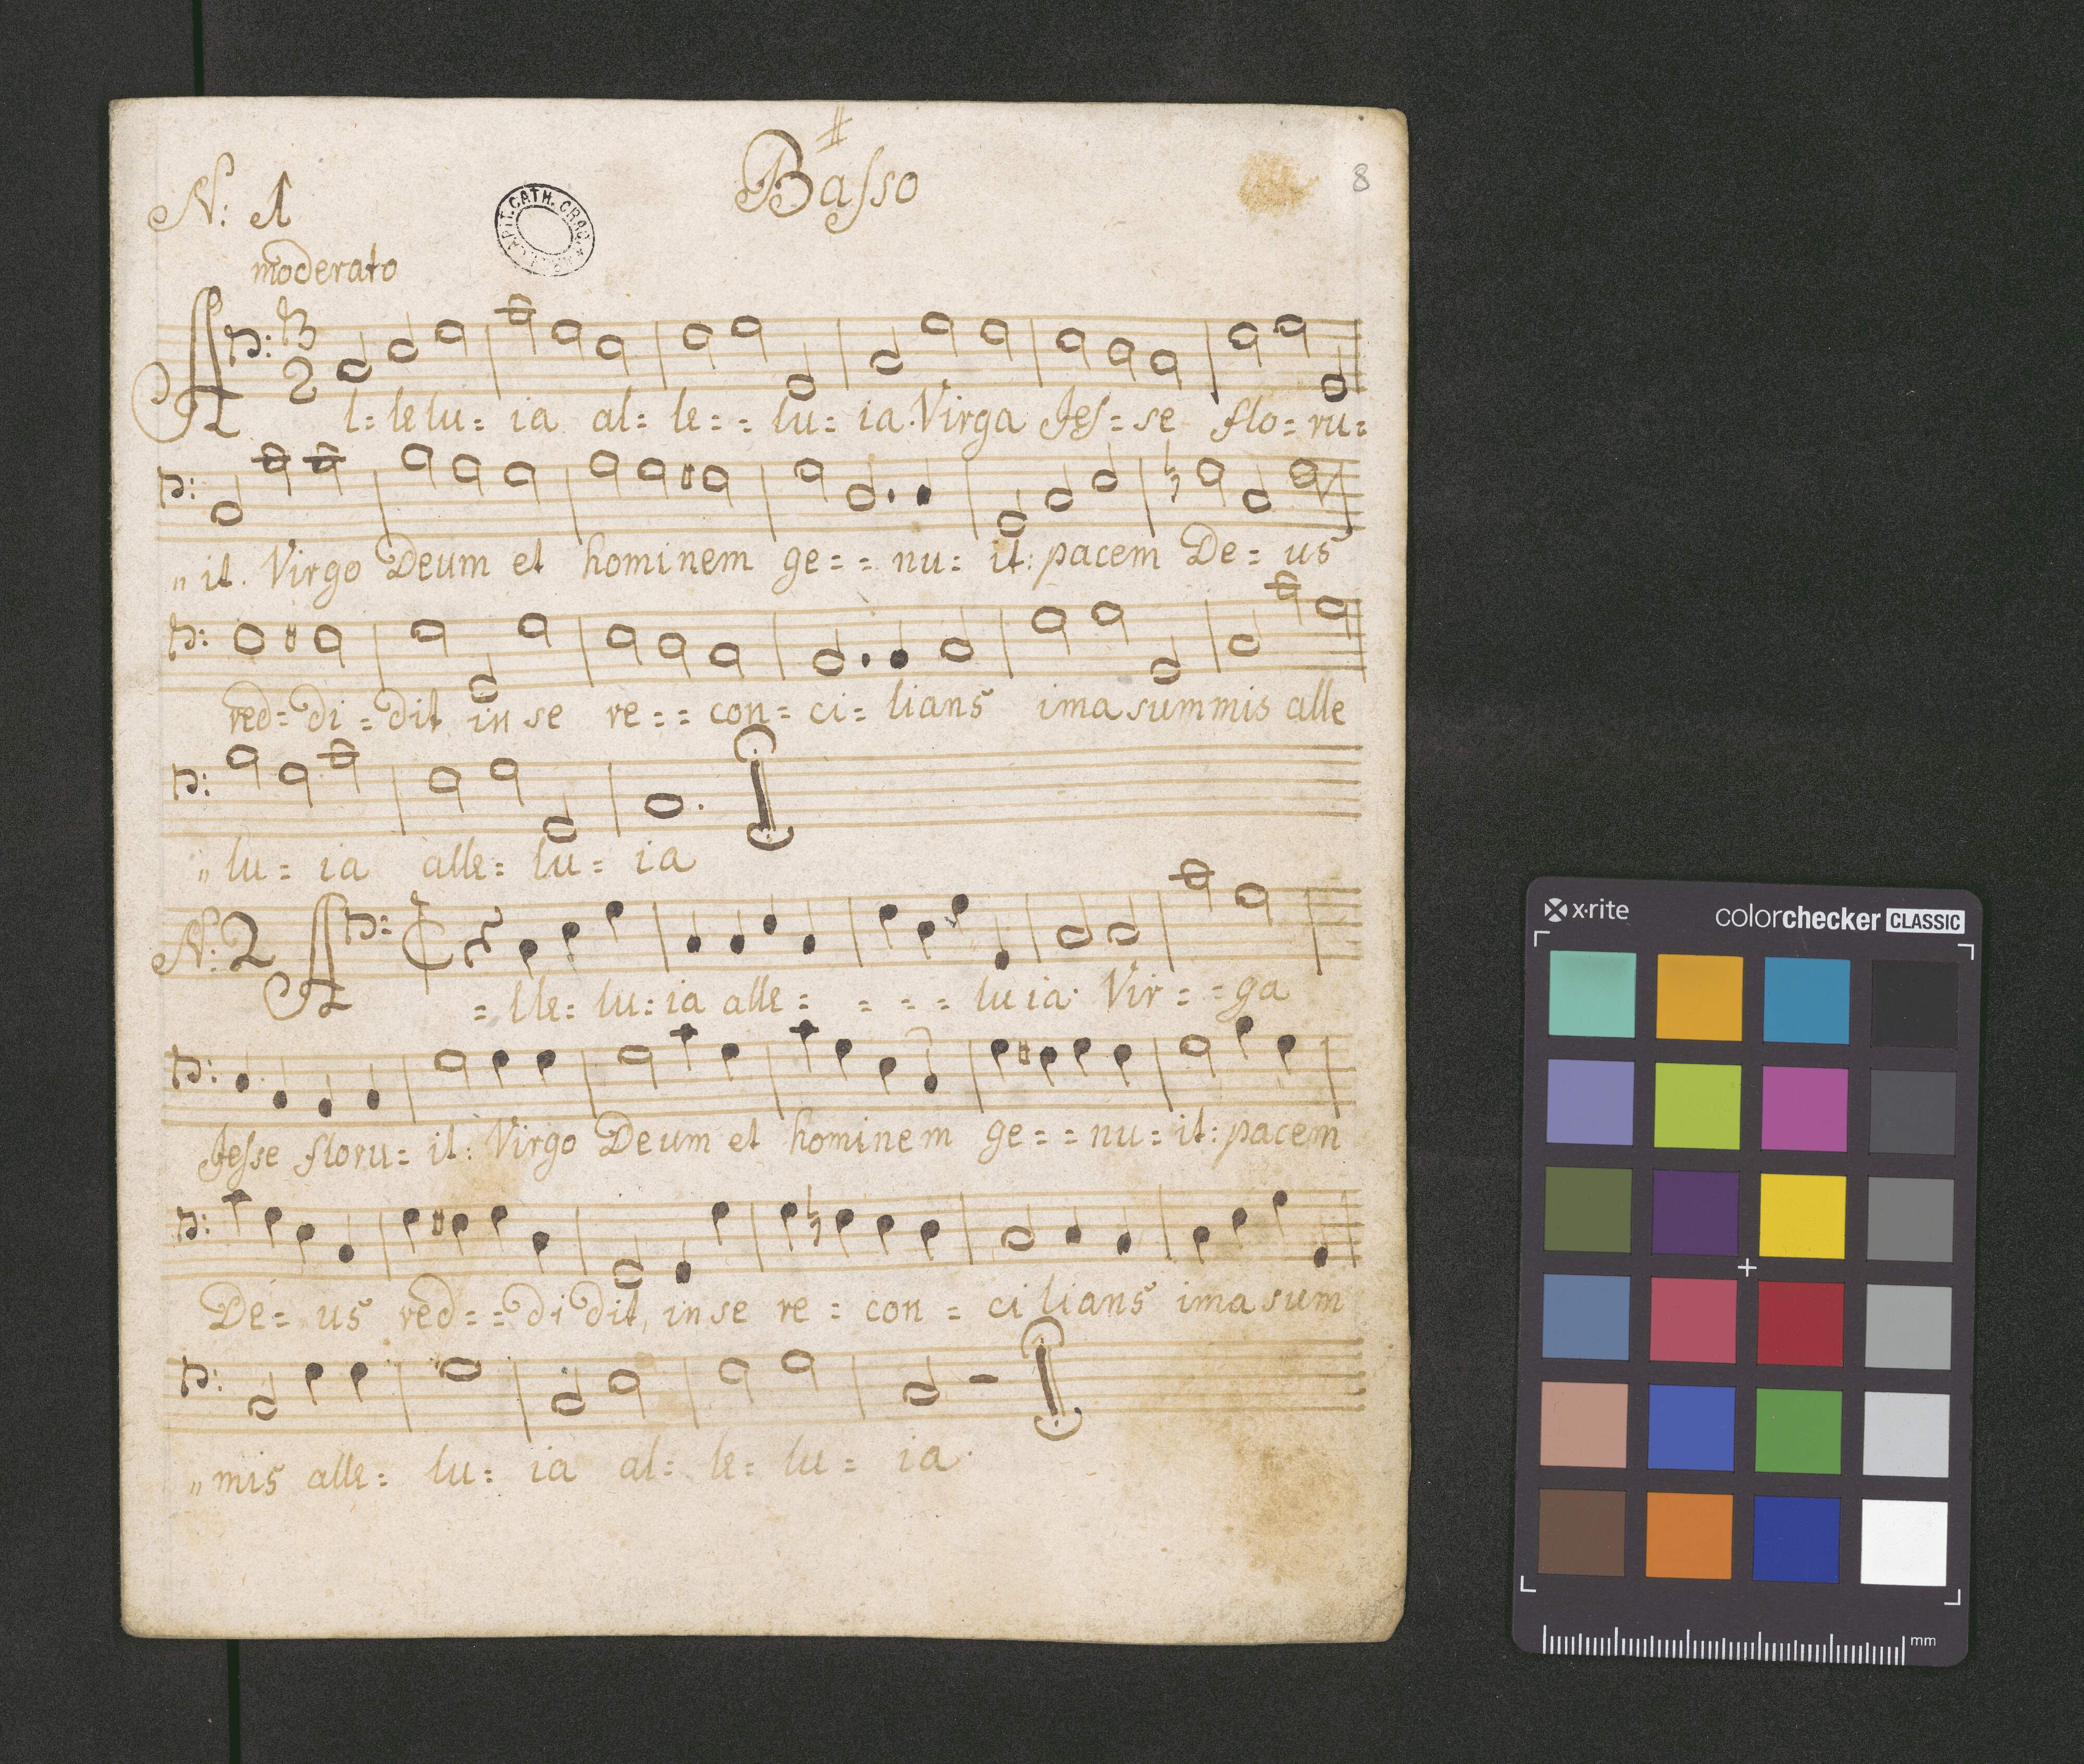 Basso
8
N: 1
CAPIT. CATH. CRAC.
moderato
3
2
Al=lelu=ia al=le==lu=ia. Virga Jes=se flo=ru=
"it. Virgo Deum et hominem ge==nu=it: pacem De=us
red=di=dit in se re==con=ci=lians ima summis alle
"lu=ia alle=lu=ia
N: 2
A=lle=lu=ia alle====luia. Vir==ga
Jesse floru=it: Virgo Deum et hominem ge==nu=it: pacem
De=us red==didit, in se re=con=cilians ima sum
"mis alle=lu=ia al=le=lu=ia.
x·rite
colorchecker CLASSIC
mm